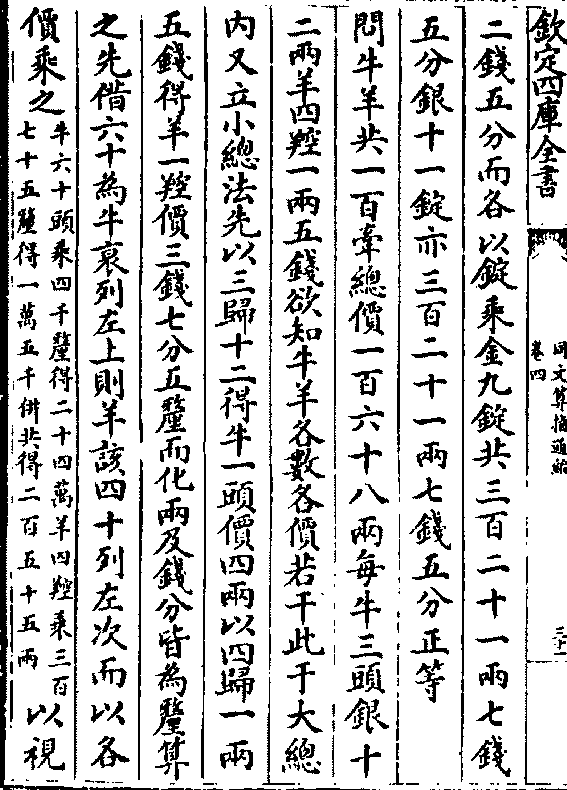 欽定四庫全書
同文算指通編
卷四
三十一
二錢五分而各以錠乘金九錠共三百二十一兩七錢
五分銀十一錠亦三百二十一兩七錢五分正等
問牛羊共一百牽總價一百六十八兩每牛三頭銀十
二兩羊四羫一兩五錢欲知牛羊各數各價若干此于大總
內又立小總法先以三歸十二得牛一頭價四兩以四歸一兩
五錢得羊一羫價三錢七分五釐而化兩及錢分皆為釐算
之先借六十為牛衰列左上則羊該四十列左次而以各
價乘之牛六十頭乘四千釐得二十四萬羊四羫乘三百
七十五釐得一萬五千併共得二百五十五兩以視